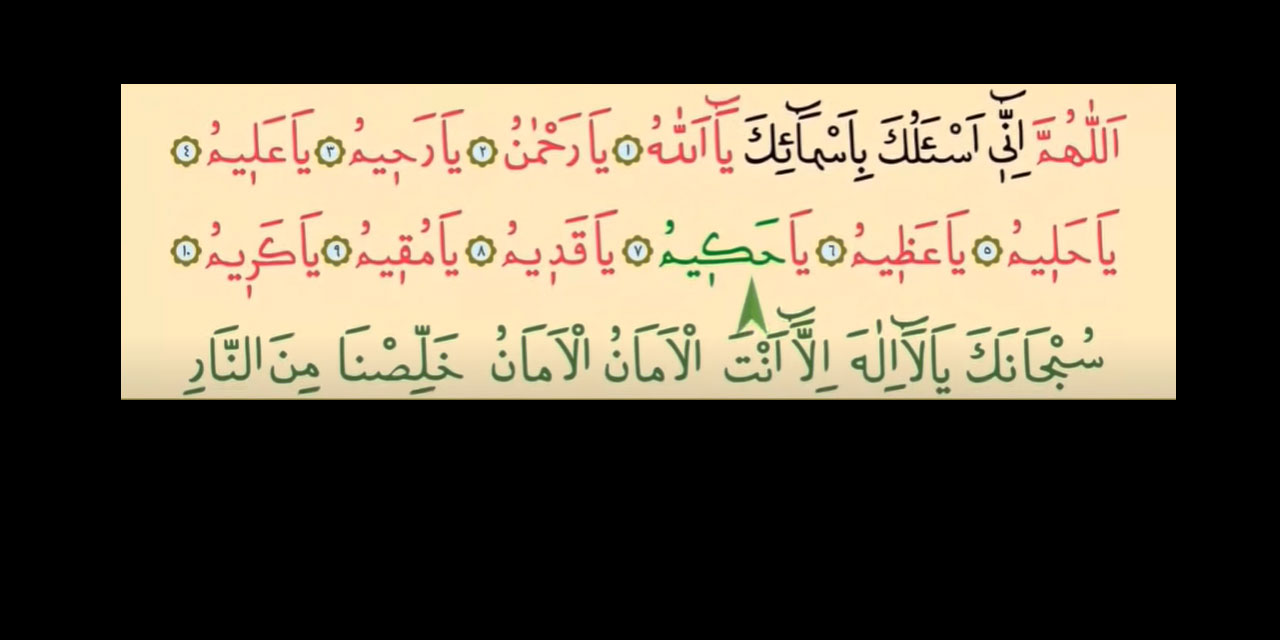 اَللّٰهُمَّ اِنّ۪ٓي اَسْئَلُكَ بِاَسْمَٓائِكَ يَٓا اَللّٰهُ ١ يَا رَحْمٰنُ ٢ يَا رَح۪يمُ ٣ يَا عَل۪يمُ ٤
يَا حَل۪يمُ ٥ يَا عَظ۪يمُ ٦ يَا حَك۪يمُ ٧ يَا قَد۪يمُ ٨ يَا مُق۪يمُ ٩ يَا كَر۪يمُ ١٠
سُبْحَانَكَ يَا لَٓا اِلٰهَ اِلَّٓا اَنْتَ الْاَمَانُ الْاَمَانُ خَلِّصْنَا مِنَ النَّارِ